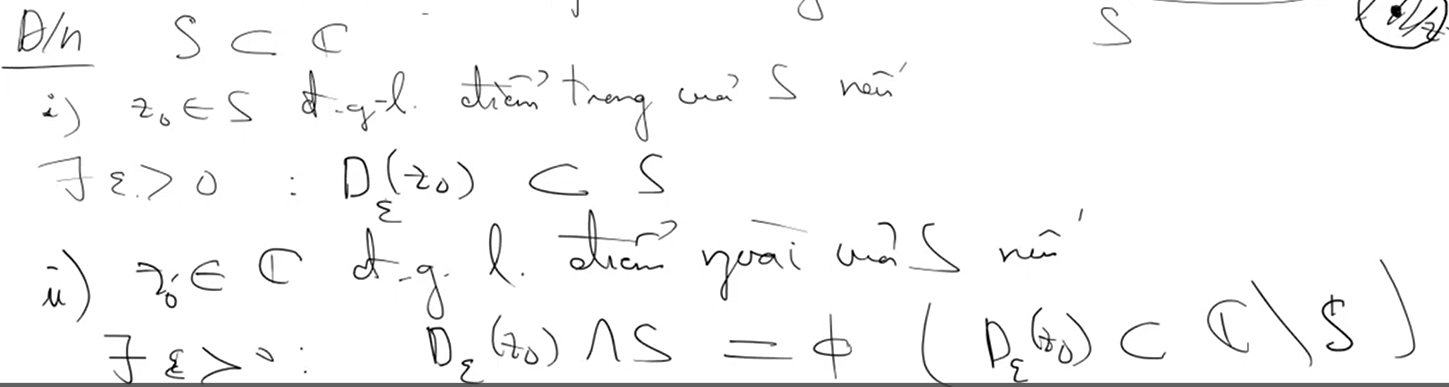 Đ/n S ⊂ ℂ S
i) z₀ ∈ S đ.g.l. điểm trong của S nếu
∃ ε > 0 : D_ε(z₀) ⊂ S
ii) z₀ ∈ ℂ đ.g.l. điểm ngoài của S nếu
∃ ε > 0 : D_ε(z₀) ∩ S = ϕ ( D_ε(z₀) ⊂ ℂ \ S )